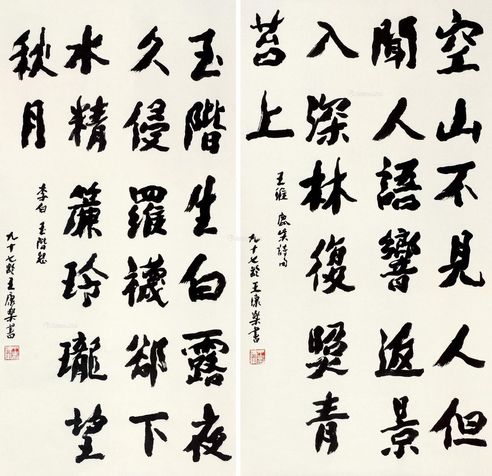 空山不見人但
聞人語響返景
入深林復照青
苔上
王維 鹿柴詩句
九十七齡王康樂書
玉階生白露夜
久侵羅襪卻下
水精簾玲瓏望
秋月
李白 玉階怨
九十七齡王康樂書